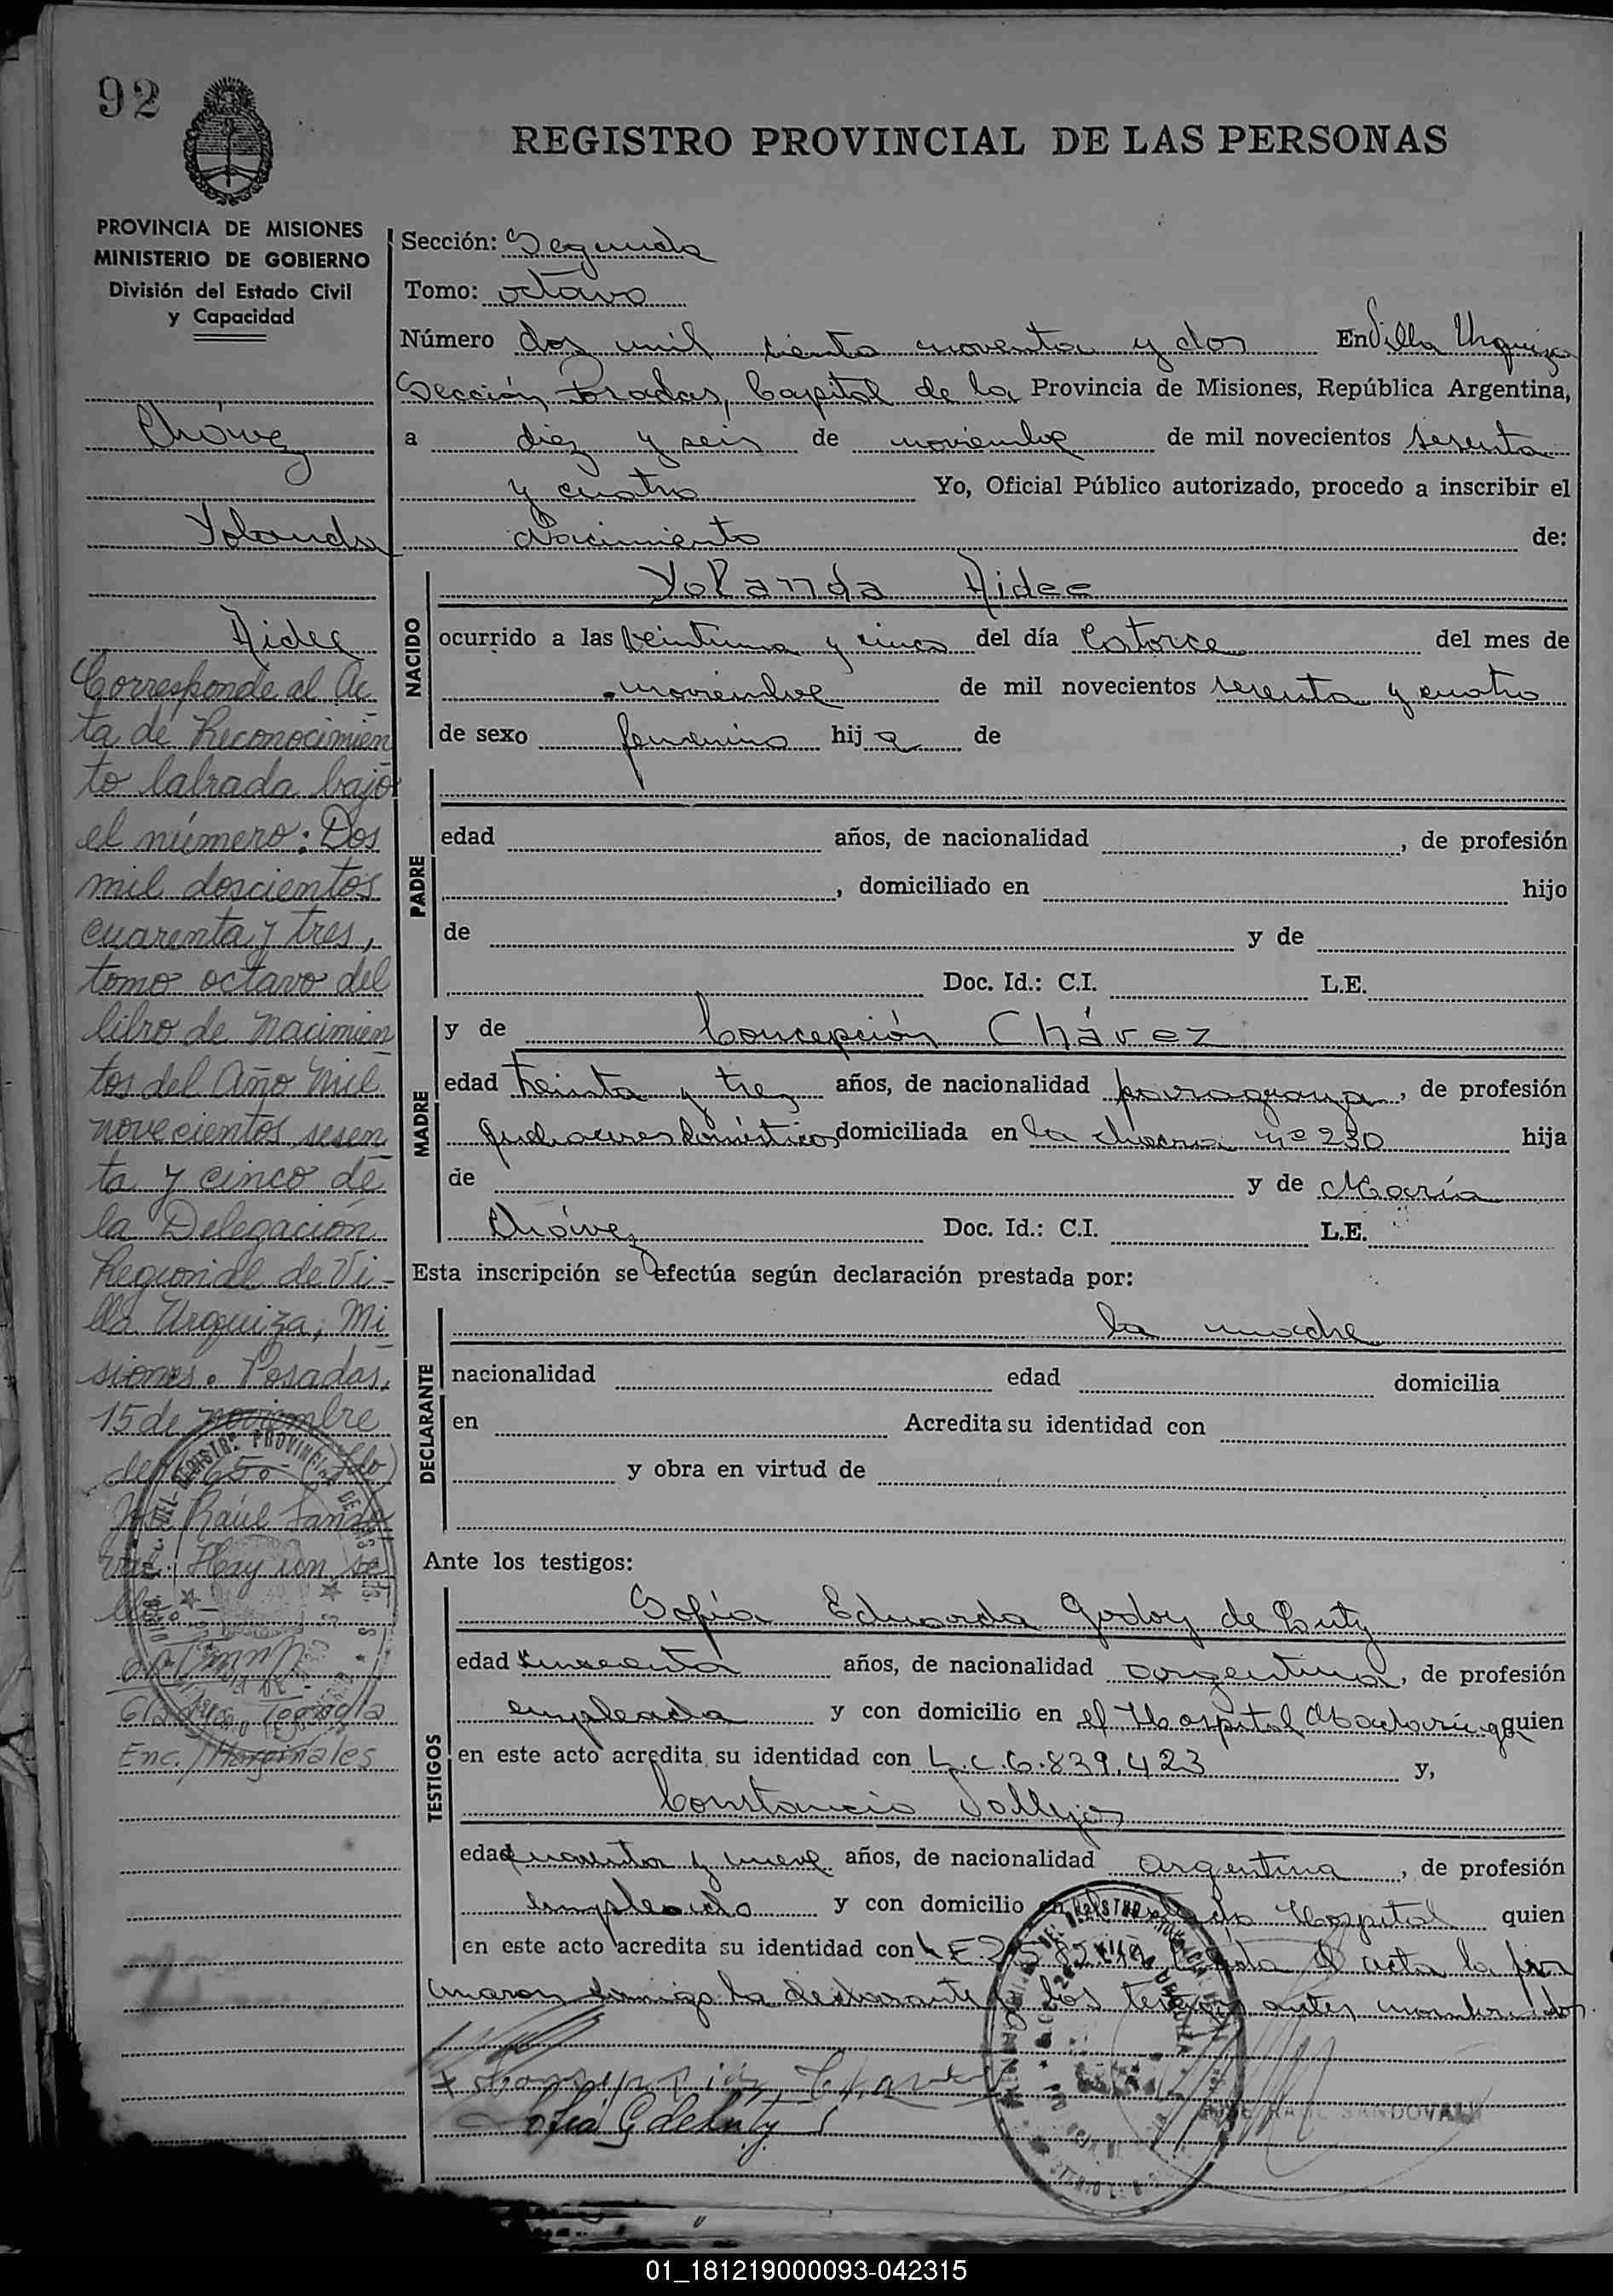 92
REGISTRO PROVINCIAL DE LAS PERSONAS
PROVINCIA DE MISIONES
MINISTERIO DE GOBIERNO
División del Estado Civil
y Capacidad
Chávez
Yolanda
Aidee
Corresponde al Ac
ta de Reconocimien
to labrada bajo
el número: Dos
mil doscientos
cuarenta y tres,
tomo octavo del
libro de Nacimien
tos del Año Mil
novecientos sesen
ta y cinco de
la Delegación
Regional de Vi-
lla Urquiza, Mi
siones. Posadas,
15 de noviembre
de 1965.- (Fdo)
José Raúl Sando
val: Hay un se
llo.
Enc. Marginales
Sección: Segunda
Tomo: octavo
Número dos mil ciento noventa y dos En Villa Urquiza
Sección Posadas, Capital de la Provincia de Misiones, República Argentina,
a diez y seis de noviembre de mil novecientos sesenta
y cuatro Yo, Oficial Público autorizado, procedo a inscribir el
Nacimiento de:
NACIDO
Yolanda Aidee
ocurrido a las veintiuna y cinco del día Catorce del mes de
noviembre de mil novecientos sesenta y cuatro
de sexo femenino hija de
PADRE
edad años, de nacionalidad , de profesión
, domiciliado en hijo
de y de
Doc. Id.: C.I. L.E.
MADRE
y de Concepción Chávez
edad treinta y tres años, de nacionalidad paraguaya, de profesión
quehaceres domésticos domiciliada en la chacra nº 230 hija
de y de María
Chávez Doc. Id.: C.I. L.E.
Esta inscripción se efectúa según declaración prestada por:
DECLARANTE
la madre
nacionalidad edad domicilia
en Acredita su identidad con
y obra en virtud de
Ante los testigos:
TESTIGOS
Sofía Eduarda Godoy de Luty
edad cincuenta años, de nacionalidad argentina, de profesión
empleada y con domicilio en el Hospital Madariaga quien
en este acto acredita su identidad con L.C.6.839.423 y,
Constancio Vallejos
edad cuarenta y nueve años, de nacionalidad argentina, de profesión
empleado y con domicilio en el citado Hospital quien
en este acto acredita su identidad con L.E. Leída el acta la fir
maron conmigo la declarante y los testigos antes nombrados.
Concepción Chavez
Sofia G de Luty
JOSE RAUL SANDOVAL
01_181219000093-042315